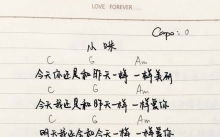 LOVE FOREVER....
Capo: 0
小咪
C G Am
今天你还是和昨天一样 一样美丽
C G Am
今天我还是和昨天一样 一样爱你
C G Am
明天我还会和今天一样